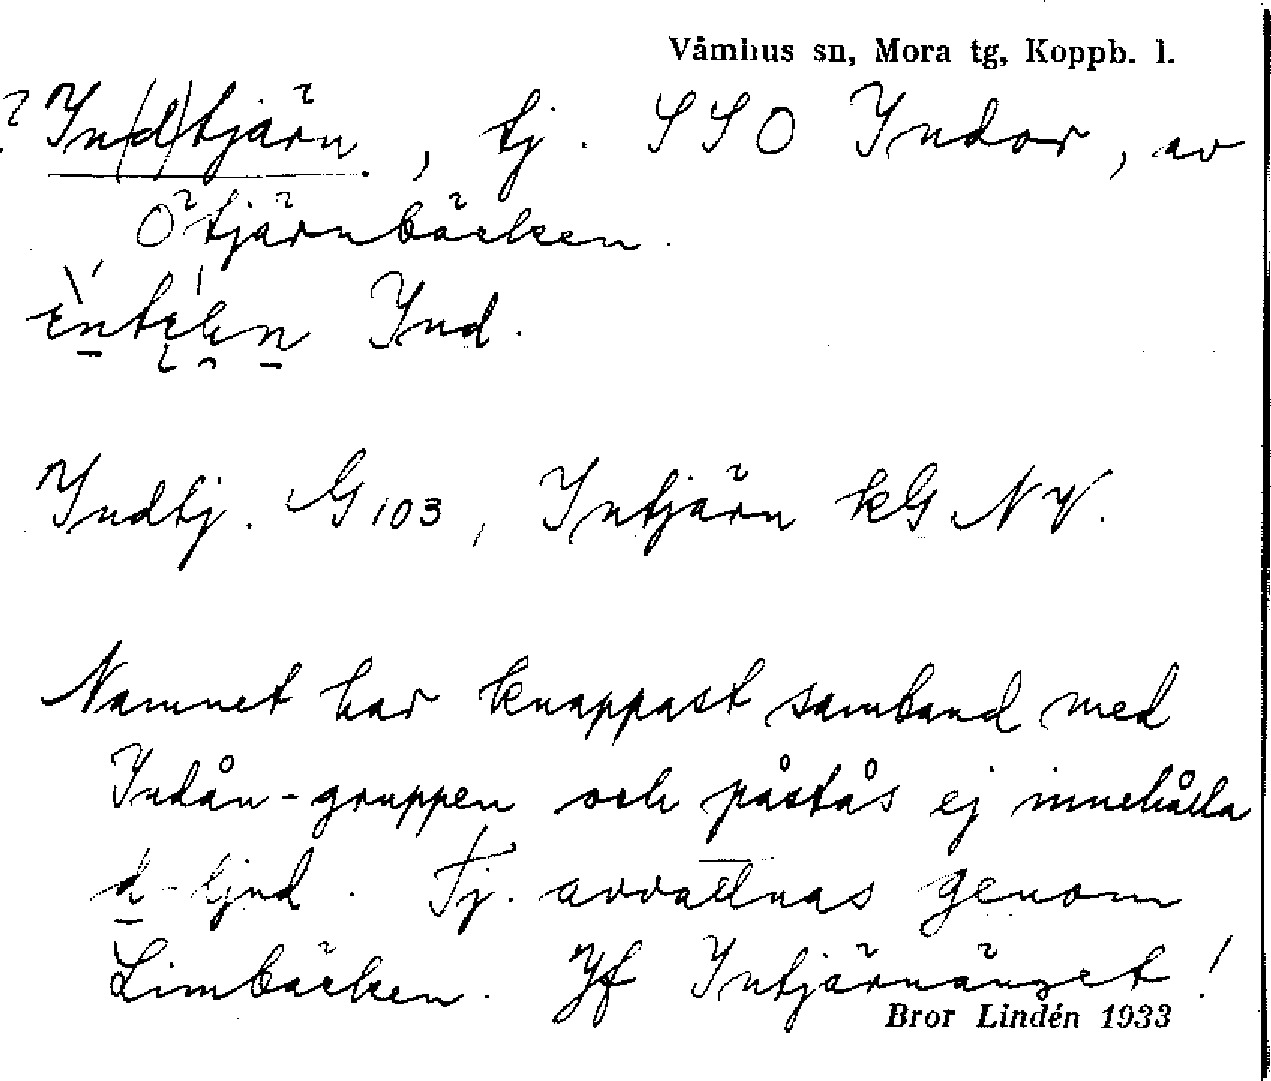 Våmhus sn, Mora tg, Koppb. l.
? In(d)tjärn, tj. SSO Indor, av
Ötjärnbäcken.
Ind.
Indtj. G 103, Intjärn kG NV.
Namnet har knappast samband med
Indån-gruppen och påstås ej innehålla
d-ljud. Tj. avvattnas genom
Limbäcken. Jf Intjärnänget!
Bror Lindén 1933